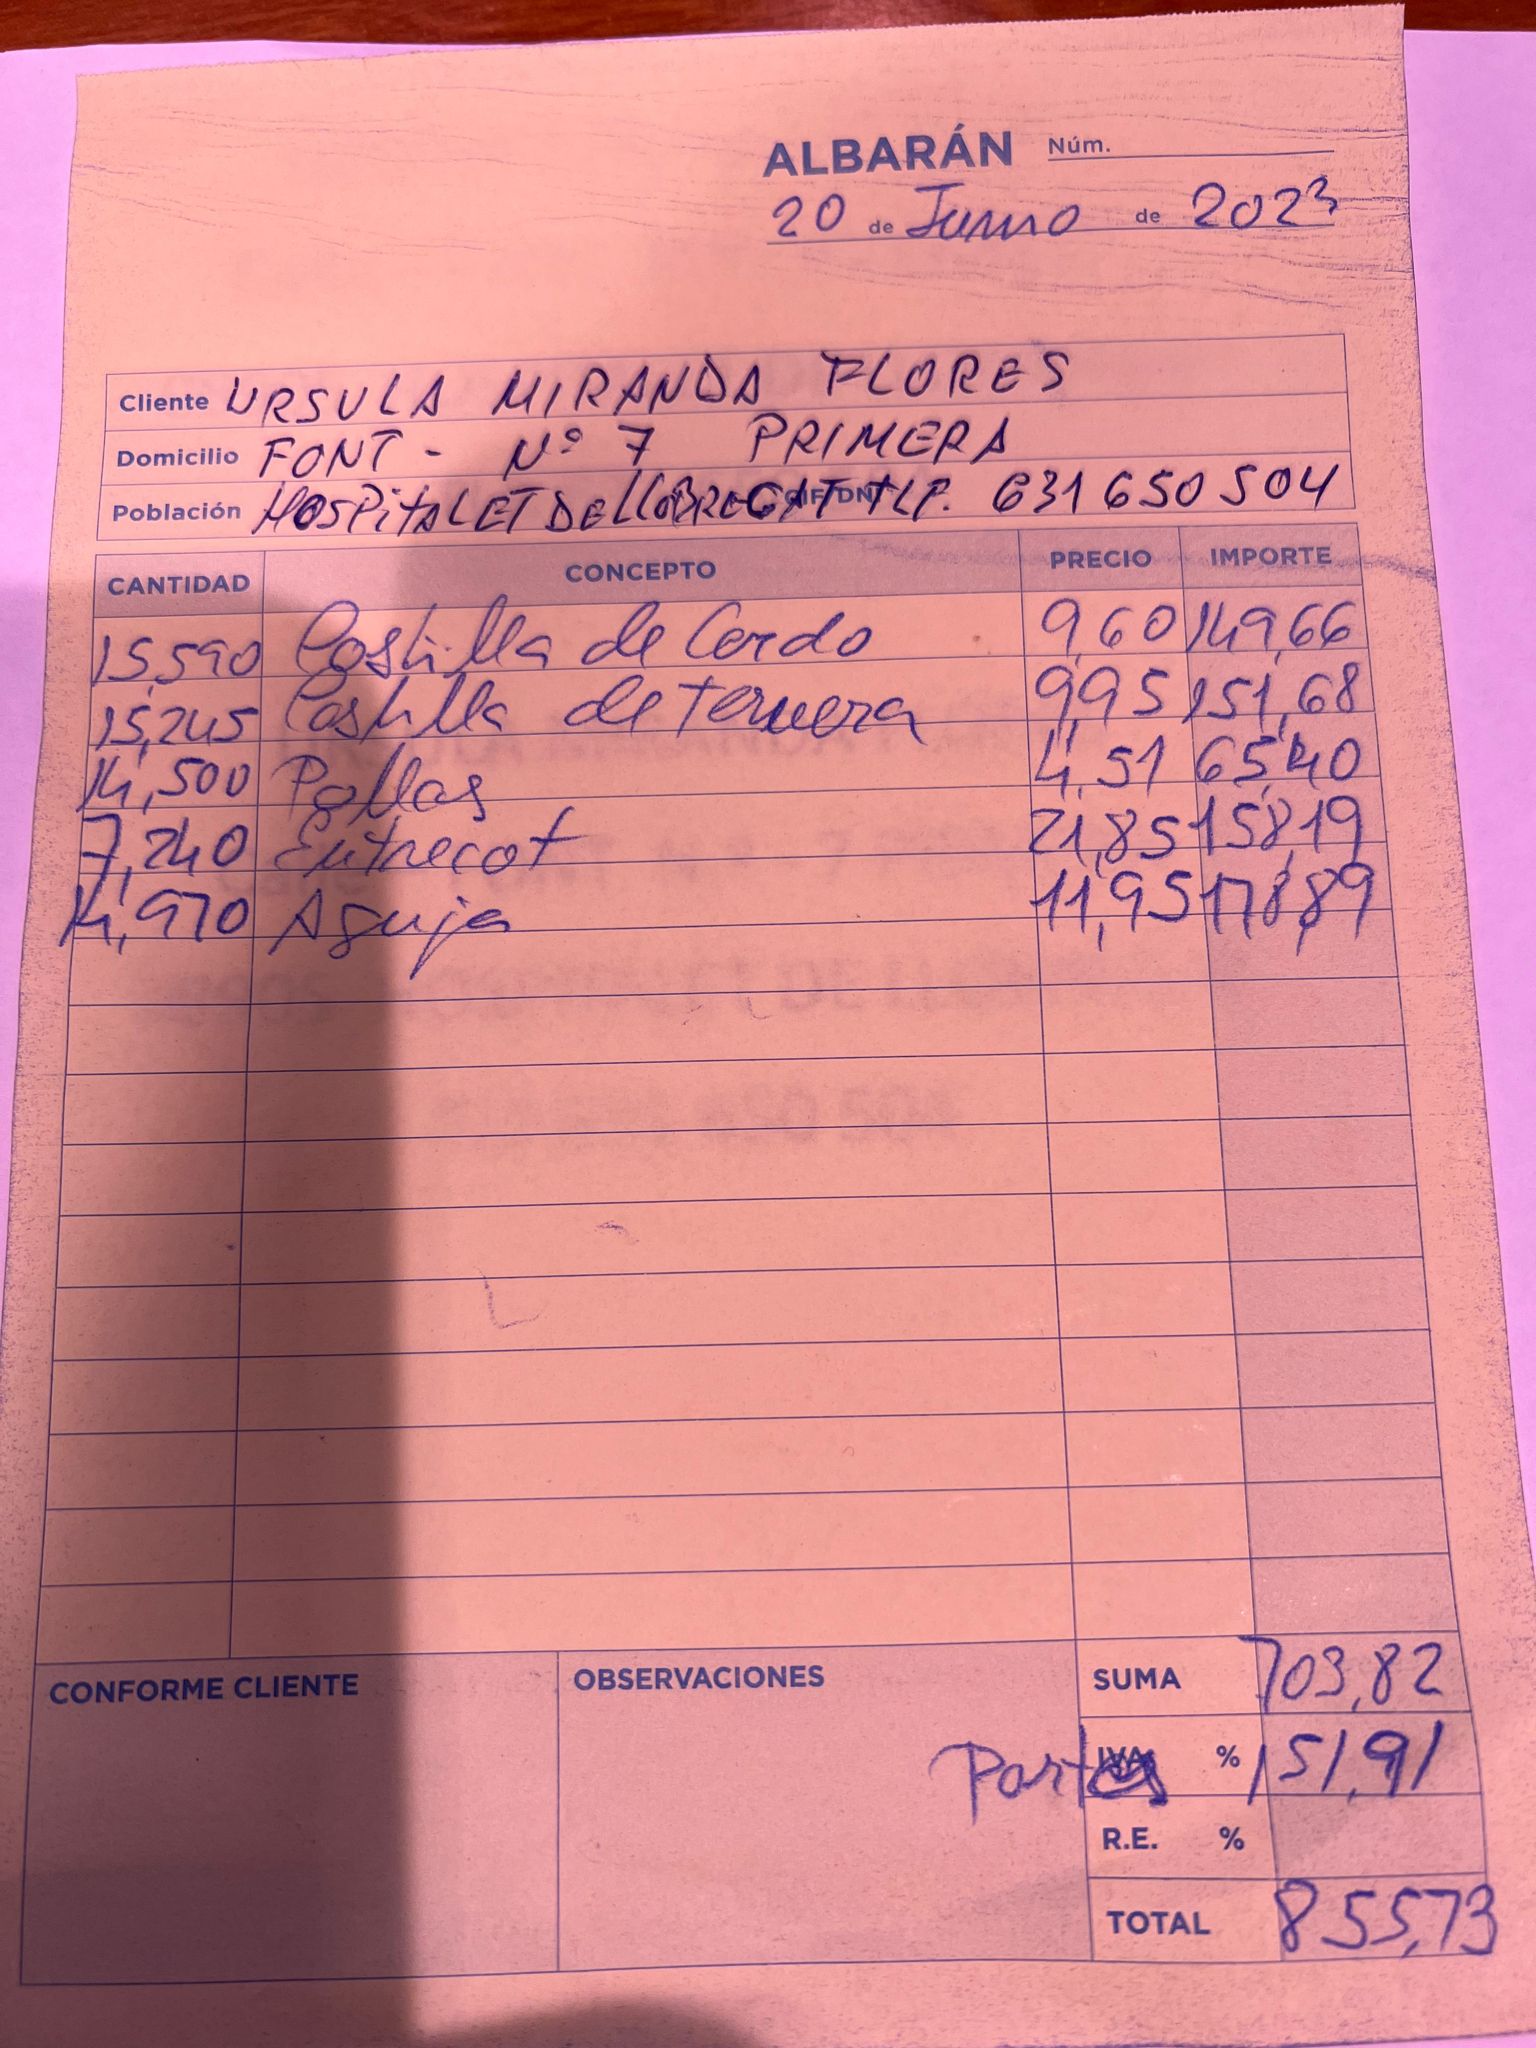 ALBARÁN Núm.
20 de Junio de 2023
Cliente URSULA MIRANDA FLORES
Domicilio FONT - Nº 7 PRIMERA
Población HOSPITALET DE LLOBREGAT CIF/DNI TLF. 631650504
CANTIDAD CONCEPTO PRECIO IMPORTE
15,590 Costilla de Cerdo 9,60 149,66
15,245 Costilla de ternera 9,95 151,68
14,500 Pollos 4,51 65,40
7,240 Entrecot 21,85 158,19
14,970 Aguja 11,95 178,89
CONFORME CLIENTE OBSERVACIONES SUMA 703,82
Portes IVA % 151,91
R.E. %
TOTAL 855,73